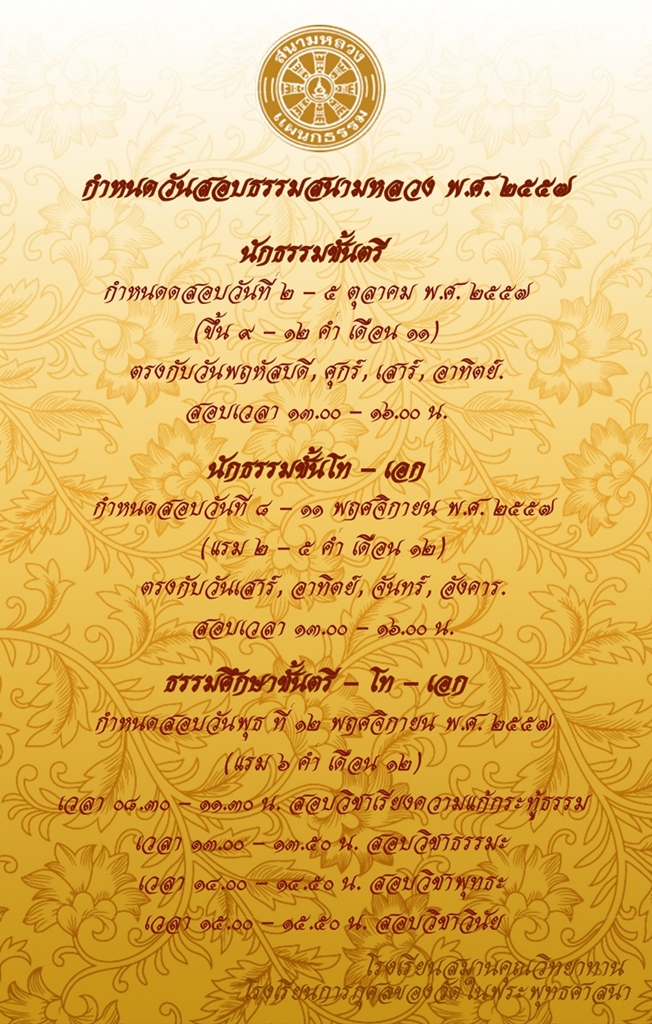 สนามหลวง
แผนกธรรม
กำหนดวันสอบธรรมสนามหลวง พ.ศ. ๒๕๕๗
นักธรรมชั้นตรี
กำหนดดสอบวันที่ ๒ – ๕ ตุลาคม พ.ศ. ๒๕๕๗
(ขึ้น ๙ – ๑๒ ค่ำ เดือน ๑๑)
ตรงกับวันพฤหัสบดี, ศุกร์, เสาร์, อาทิตย์.
สอบเวลา ๑๓.๐๐ – ๑๖.๐๐ น.
นักธรรมชั้นโท – เอก
กำหนดสอบวันที่ ๘ – ๑๑ พฤศจิกายน พ.ศ. ๒๕๕๗
(แรม ๒ – ๕ ค่ำ เดือน ๑๒)
ตรงกับวันเสาร์, อาทิตย์, จันทร์, อังคาร.
สอบเวลา ๑๓.๐๐ – ๑๖.๐๐ น.
ธรรมศึกษาชั้นตรี – โท – เอก
กำหนดสอบวันพุธ ที่ ๑๒ พฤศจิกายน พ.ศ. ๒๕๕๗
(แรม ๖ ค่ำ เดือน ๑๒)
เวลา ๐๘.๓๐ – ๑๑.๓๐ น. สอบวิชาเรียงความแก้กระทู้ธรรม
เวลา ๑๓.๐๐ – ๑๓.๕๐ น. สอบวิชาธรรมะ
เวลา ๑๔.๐๐ – ๑๔.๕๐ น. สอบวิชาพุทธะ
เวลา ๑๕.๐๐ – ๑๕.๕๐ น. สอบวิชาวินัย
โรงเรียนสมานคุณวิทยาทาน
โรงเรียนการกุศลของวัดในพระพุทธศาสนา